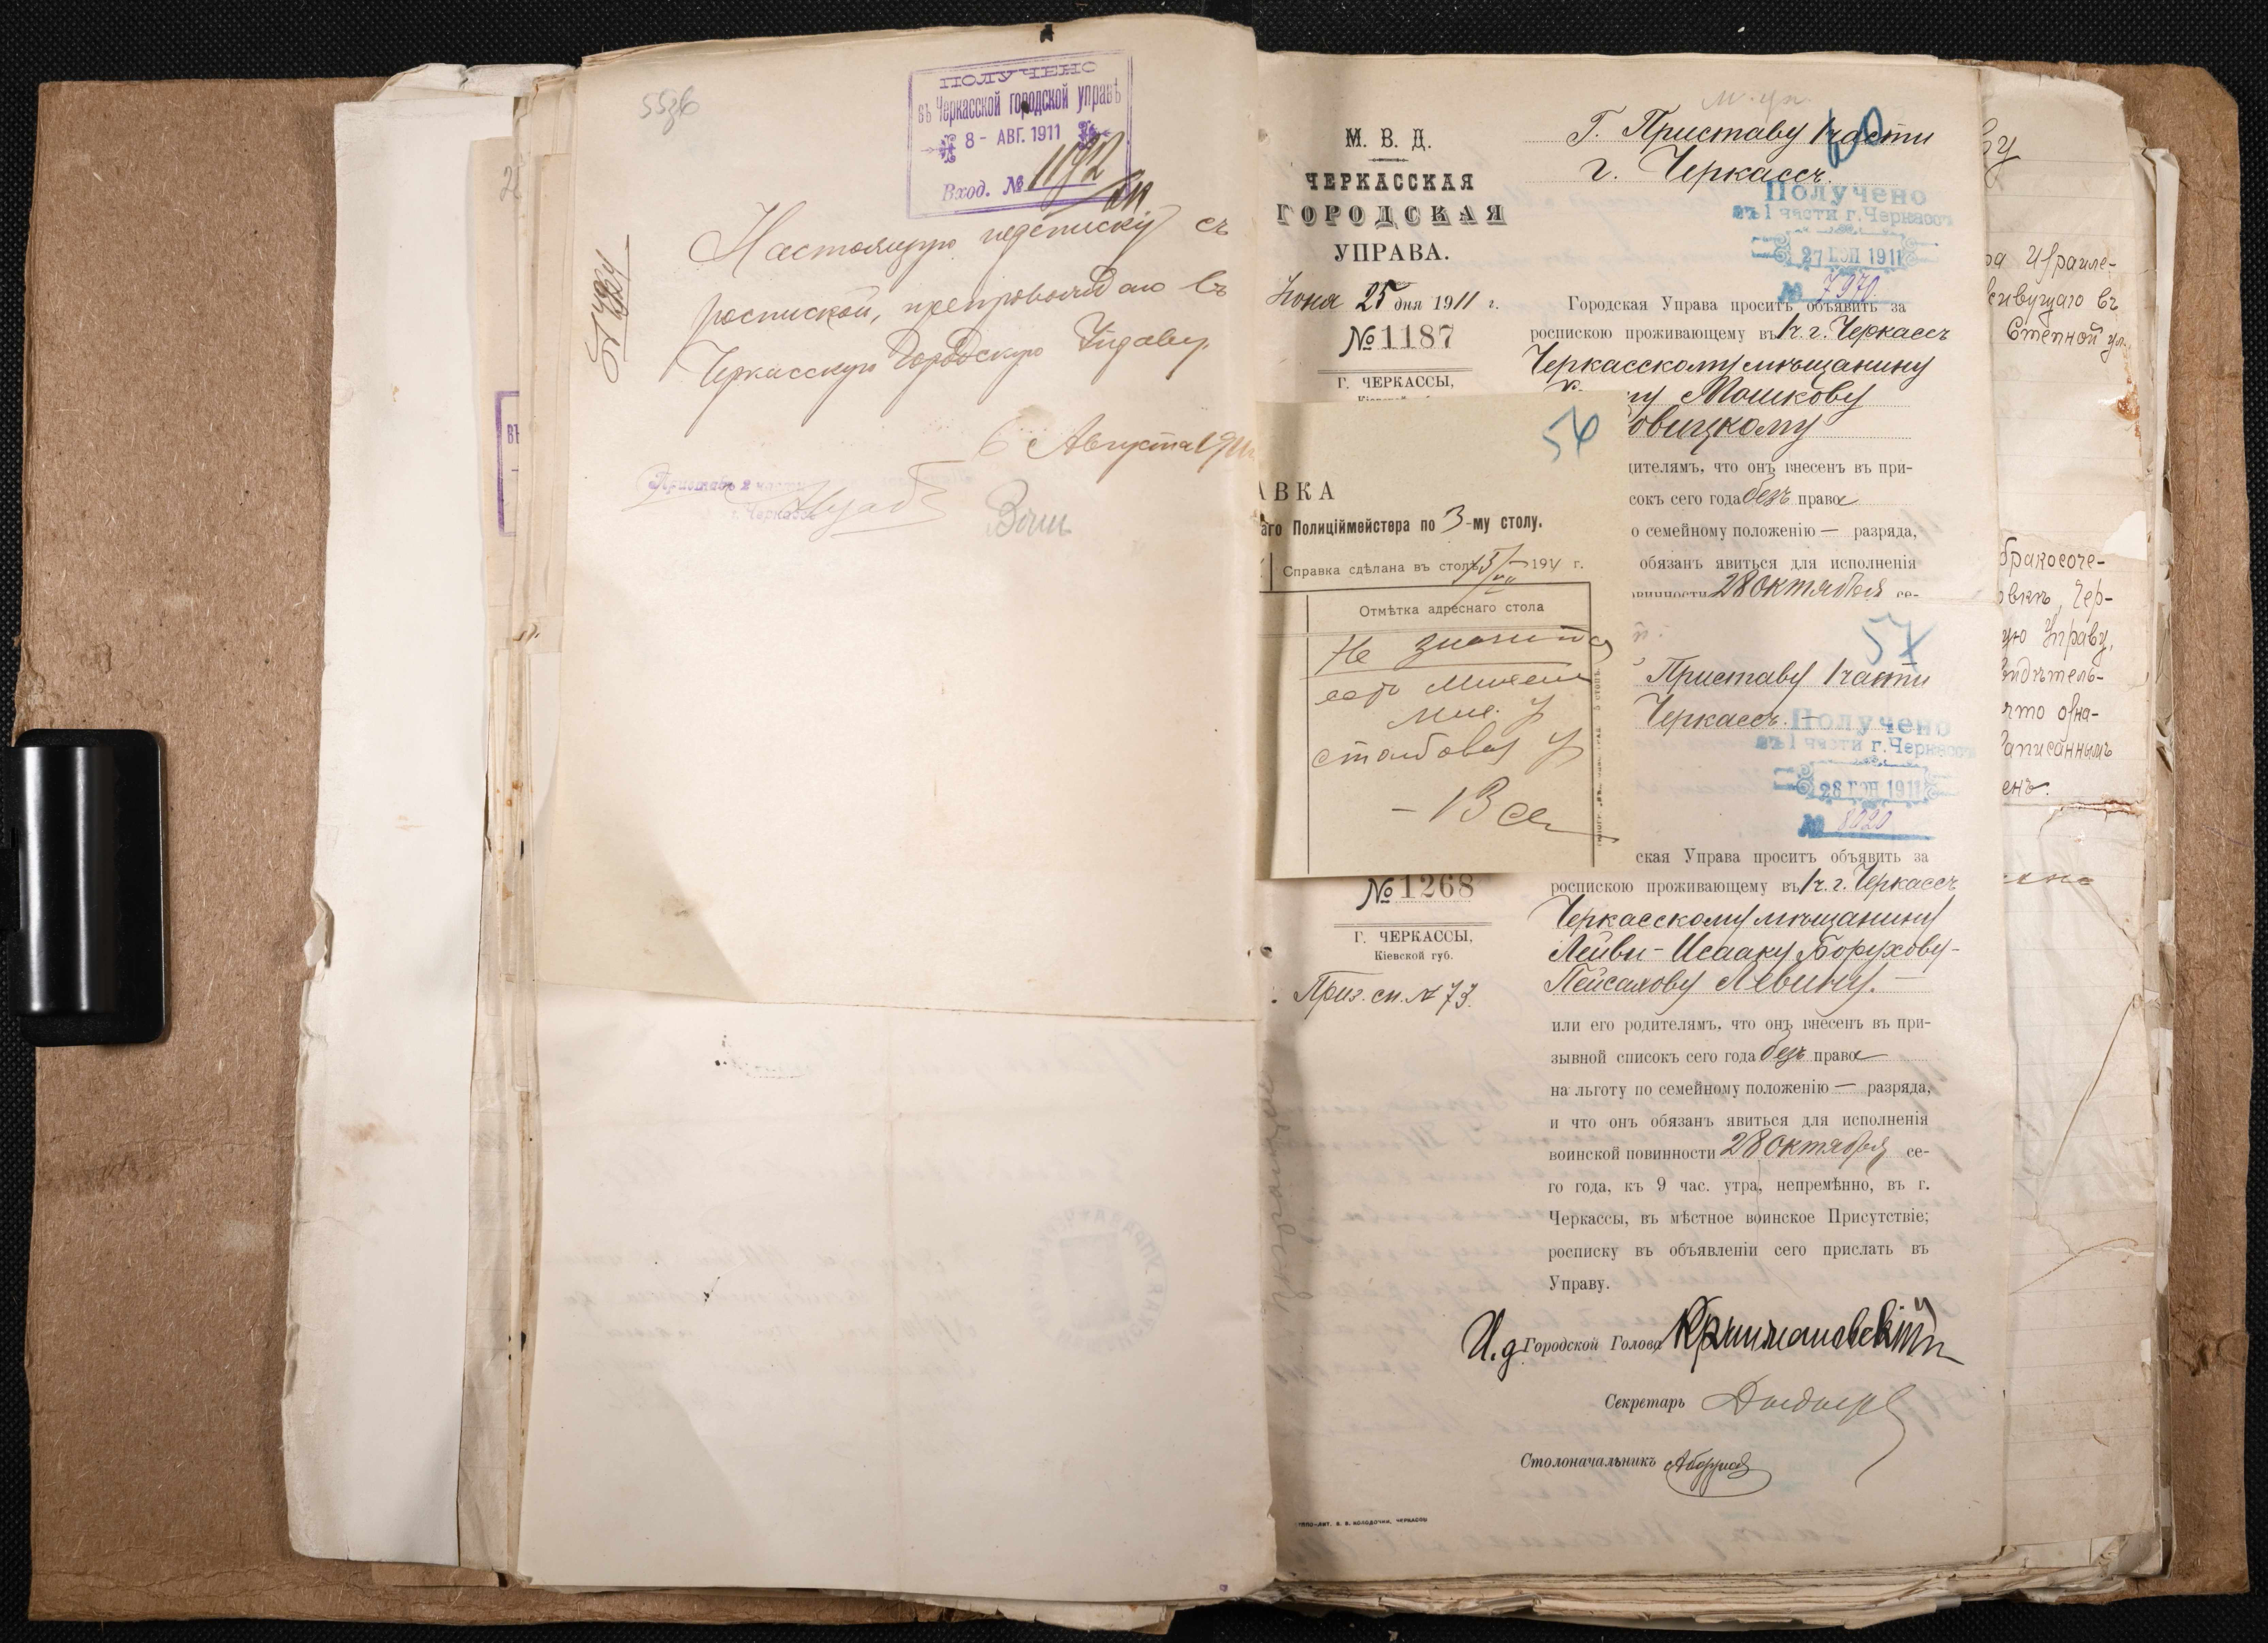 55зв
ПОЛУЧЕНО
въ Черкасской городской управѣ
8 - АВГ. 1911
Вход. № 1192
Настоящую подписку съ
роспиской, препровождаю въ
Черкасскую Городскую Управу.
6 Августа 1911
Приставъ 2 части
г. Черкассъ
М. В. Д.
ЧЕРКАССКАЯ
ГОРОДСКАЯ
УПРАВА.
Іюня 25 дня 1911 г.
№ 1187
Г. ЧЕРКАССЫ,
Г. Приставу 1 части
г. Черкассъ.
Получено
въ 1 части г. Черкассъ
27 ІЮН 1911
№ 7970
Городская Управа проситъ объявить за
роспискою проживающему въ 1 ч. г. Черкассъ
Черкасскому мѣщанину
му Мошкову
овицкому
дителямъ, что онъ внесенъ въ при-
сокъ сего года безъ права
о семейному положенію — разряда,
обязанъ явиться для исполненія
винности 28 октября се-
56
АВКА
аго Полиціймейстера по 3-му столу.
Справка сдѣлана въ столѣ 191 г.
Отмѣтка адреснаго стола
Не
57
Приставу 1 части
Черкассъ. —
Получено
въ 1 части г. Черкассъ
28 ІЮН 1911
№ 8020
ская Управа проситъ объявить за
роспискою проживающему въ 1 ч. г. Черкассъ
Черкасскому мѣщанину
Лейви-Исааку Борухову-
Пейсахову Левину. —
№ 1268
Г. ЧЕРКАССЫ,
Кіевской губ.
Приз. сп. № 73.
или его родителямъ, что онъ внесенъ въ при-
зывной списокъ сего года безъ права
на льготу по семейному положенію — разряда,
и что онъ обязанъ явиться для исполненія
воинской повинности 28 октября се-
го года, къ 9 час. утра, непремѣнно, въ г.
Черкассы, въ мѣстное воинское Присутствіе;
росписку въ объявленіи сего прислать въ
Управу.
И.д. Городской Голова
Секретарь
Столоначальникъ
ТИПО-ЛИТ. В. В. КОЛОДОЧКИ, ЧЕРКАССЫ
ву
ра Израиле-
живущаго въ
Степной ул.
бракосоче-
овкѣ, Чер-
ую Управу,
видѣтель-
что озна-
записаннымъ
енъ.